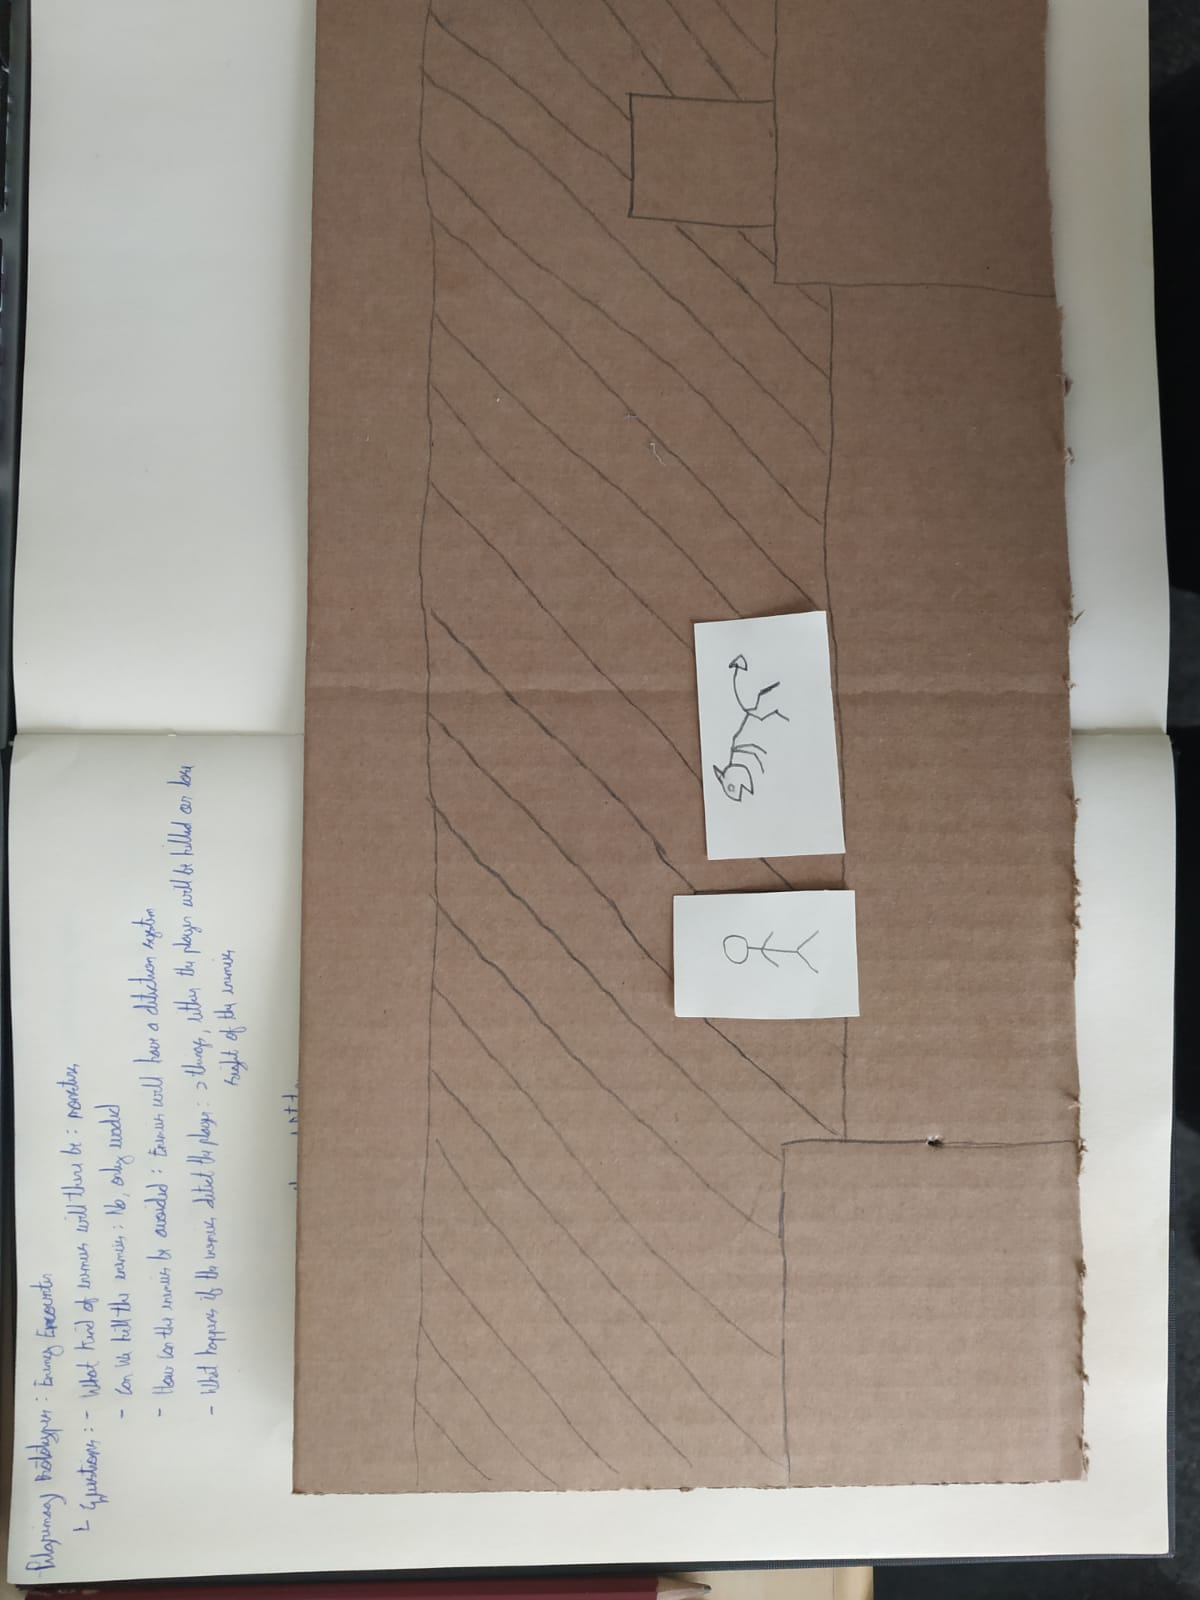 Pilgrimag Prototypes : Enemy Encounter
└ Questions : - What kind of enemies will there be : monsters
- Can we kill the enemies : No, only evaded
- How can the enemies be avoided : Enemies will have a detection system
- What happens if the enemies detect the player : 2 things, either the player will be killed or lose
sight of the enemies